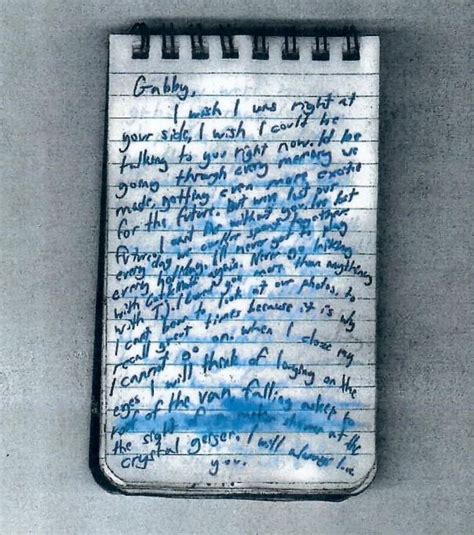 Gabby,
I wish I was right at
your side, I wish I could be
talking to you right now. I'd be
going through every memory we
made, getting even more excited
for the future. But we've lost our
future. I can't live without you. I've lost
every day we could've spent together
every holiday. I'll never get to play
with again. Never go hiking
with TJ. I loved you more than anything
I can't bear to look at our photos, to
recall great times because it is why
I cannot go on. When I close my
eyes I will think of laughing on the
roof of the van, falling asleep to
the sight of at the
crystal geyser. I will always love
you.